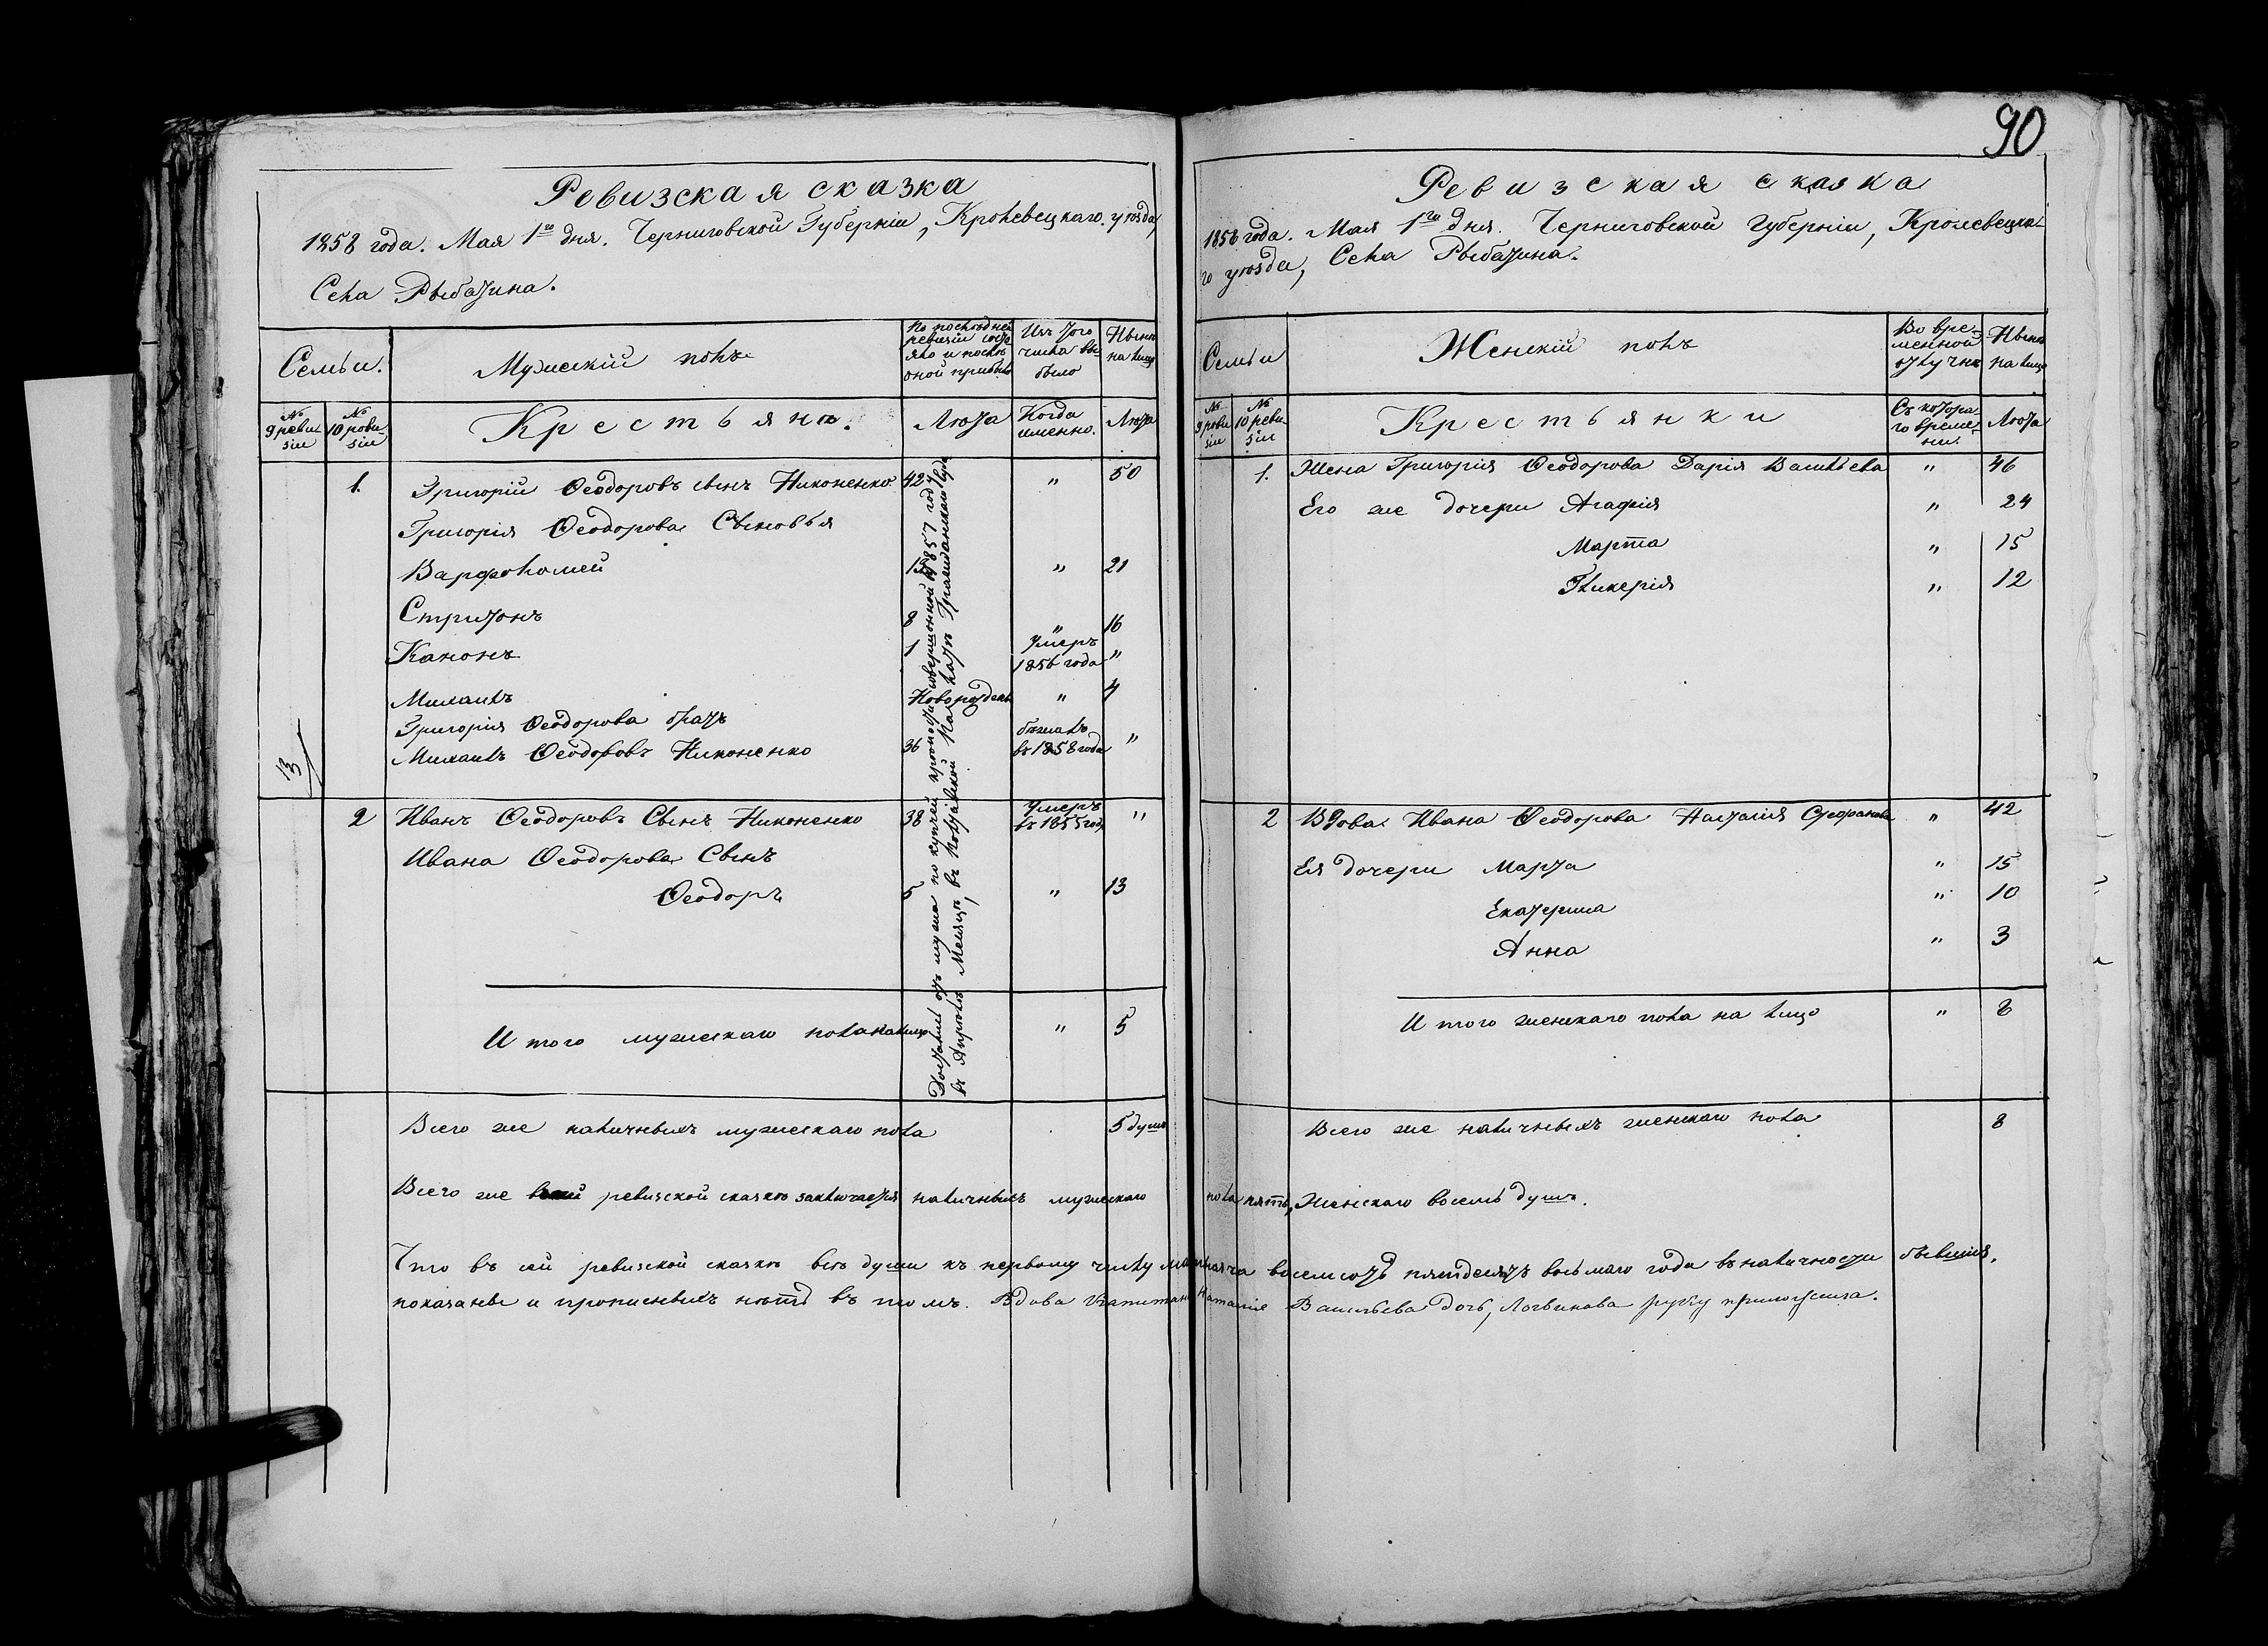 90
Ревизская сказка
1858 года. Мая 1го дня. Черниговской Губерніи, Кролевецкаго уѣзда,
Села Рыботина.
Семьи.
Мужескій полъ
По послѣдней ревизіи состояло и послѣ оной прибыло
Изъ того числа выбыло
Нынѣ на лицо
№ 9 ревизіи
№ 10 ревизіи
Крестьяне.
Лѣта
Когда именно.
Лѣта
1. Григорій Ѳеодоровъ сынъ Никоненко 42 " 50
Григорія Ѳеодорова Сыновья
Варфоломей 13 " 21
Стритонъ 8 " 16
Канонъ 1 Умеръ 1856 года "
Михаилъ Новорожденъ " 4
Григорія Ѳеодорова братъ
Михаилъ Ѳеодоровъ Никоненко 36 бѣжалъ въ 1858 года "
13
2 Иванъ Ѳеодоровъ Сынъ Никоненко 38 Умеръ въ 1855 году "
Ивана Ѳеодорова Сынъ
Ѳеодоръ 5 " 13
Достались отъ мужа по купчей крѣпости совершонной 1857 году
въ Апрѣлѣ Месяцѣ, въ Полтавской Палатѣ Гражданскаго Суда
Итого мужескаго пола на лицо " 5
Всего же наличныхъ мужескаго пола 5 душъ
Ревизская скаяка
1858 года. Мая 1го дня. Черниговской губерніи, Кролевецка-
го уѣзда, Села Рыботина.
Семьи
Женскій полъ
Во временной отлучкѣ
Нынѣ на лицо
№ 9 ревизіи
№ 10 ревизіи
Крестьянки
Съ котораго времени.
Лѣта
1. Жена Григорія Ѳеодорова Дарія Васильева " 46
Его же дочери Агафія " 24
Марта " 15
Гликерія " 12
2 Вдова Ивана Ѳеодорова Наталія Стефанова " 42
Ея дочери Марта " 15
Екатерина " 10
Анна " 3
Итого женскаго пола на лицо " 8
Всего же наличныхъ женскаго пола 8
Всего же въ сей ревизской скаякѣ заключается наличныхъ мужескаго пола пять, Женскаго восемь душъ.
Что въ сей ревизской скаякѣ всѣ души къ первому числу мая тысяча восемсотъ пятдесятъ восьмаго года въ наличности бывшія,
показаны и прописныхъ нѣтъ въ томъ. Вдова Капитана Наталія Васильева дочь, Логвинова руку приложила.